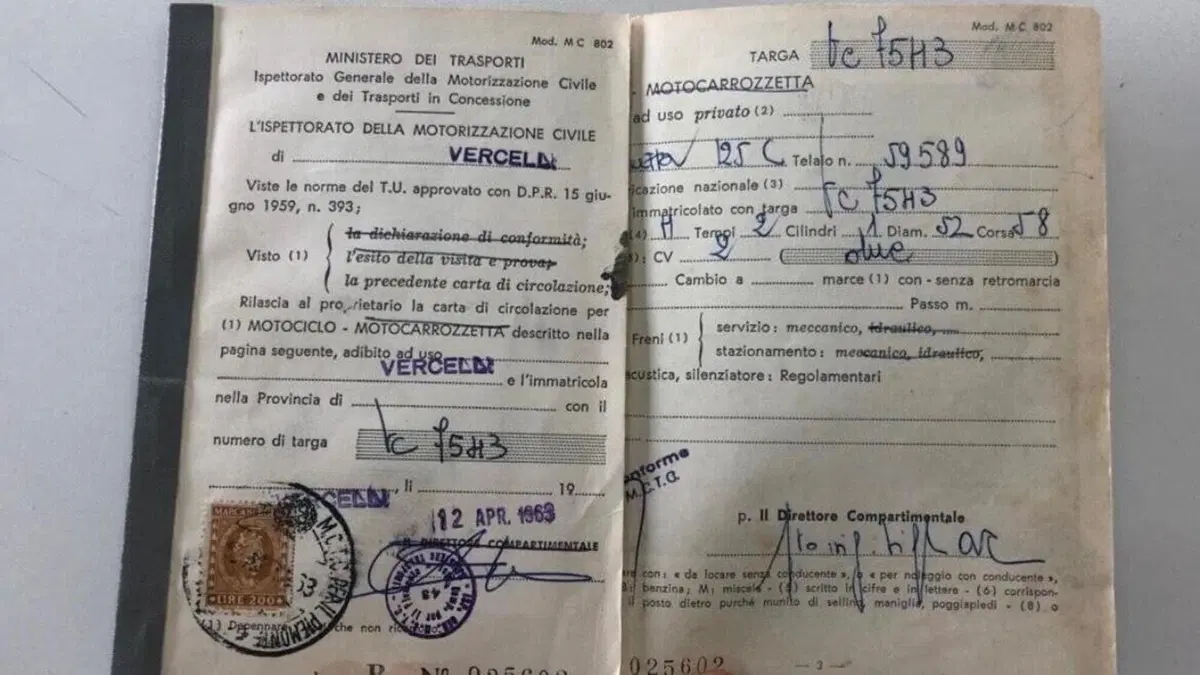 Mod. MC 802
MINISTERO DEI TRASPORTI
Ispettorato Generale della Motorizzazione Civile
e dei Trasporti in Concessione
L'ISPETTORATO DELLA MOTORIZZAZIONE CIVILE
di VERCELLI
Viste le norme del T.U. approvato con D.P.R. 15 giu-
gno 1959, n. 393;
Visto (1)
la dichiarazione di conformità;
l'esito della visita e prova;
la precedente carta di circolazione;
Rilascia al proprietario la carta di circolazione per
(1) MOTOCICLO - MOTOCARROZZETTA descritto nella
pagina seguente, adibito ad uso
VERCELLI e l'immatricola
nella Provincia di con il
numero di targa VC 75113
VERCELLI, lì 19
12 APR. 1963
IL DIRETTORE COMPARTIMENTALE
LIRE 200
(1) Depennare che non
025602
Mod. MC 802
TARGA VC 75113
- MOTOCARROZZETTA
ad uso privato (2)
125 C Telaio n. 59589
icazione nazionale (3)
immatricolato con targa VC 75113
(4) M Tempi 2 Cilindri 1 Diam. 52 Corsa 58
: CV 2 (due)
Cambio a marce (1) con - senza retromarcia
Passo m.
Freni (1)
servizio: meccanico, idraulico,
stazionamento: meccanico, idraulico,
acustica, silenziatore: Regolamentari
onforme
M.C.T.C.
p. Il Direttore Compartimentale
re con: « da locare senza conducente », o « per noleggio con conducente »,
: benzina; M: miscela - (5) scritto in cifre e in lettere - (6) corrispon-
il posto dietro purché munito di sellino, maniglia, poggiapiedi - (8) o
025602
— 3 —